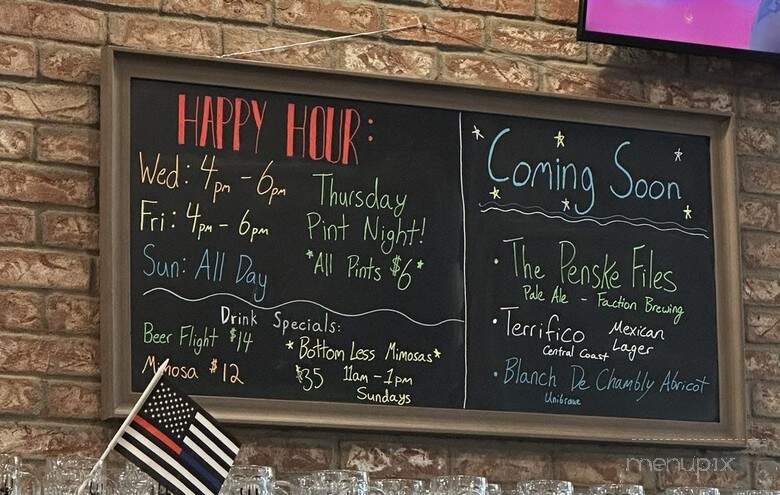 HAPPY HOUR:
Wed: 4pm - 6pm
Fri: 4pm - 6pm
Sun: All Day
Thursday
Pint Night!
*All Pints $6*
Drink Specials:
Beer Flight $14
Mimosa $12
*Bottom Less Mimosas*
$35 11am - 1pm
Sundays
Coming Soon
• The Penske Files
Pale Ale - Faction Brewing
• Terrifico Mexican
Central Coast Lager
• Blanch De Chambly Abricot
Unibroue
menupix